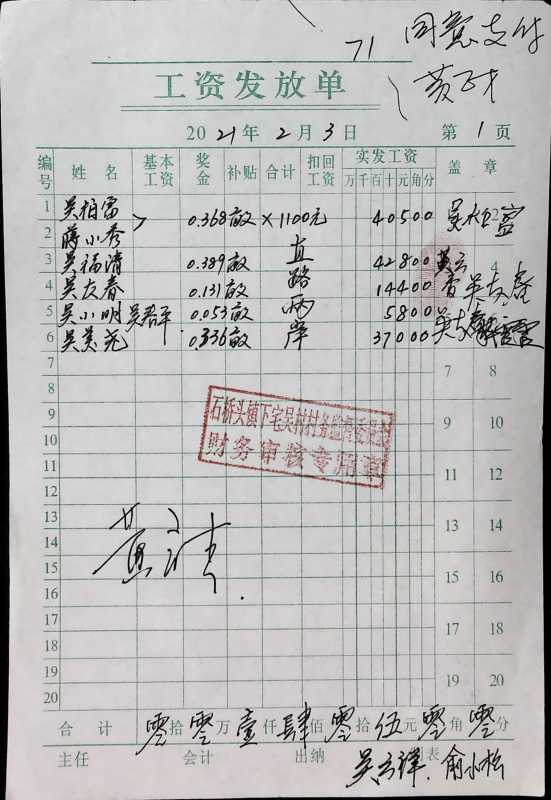 71 同意支付
工资发放单
2021年2月3日 第1页
编号 姓名 基本工资 奖金 补贴 合计 扣回工资 实发工资 盖章
万千百十元角分
1 吴柏富 0.368亩 ×1100元 40500
2 蒋小秀
3 吴福清 0.389亩 直 42800
4 吴友春 0.131亩 路 14400
5 吴小明 0.053亩 两 5800
6 吴美尧 0.336亩 岸 37000
7 7 8
8
9 9 10
10
11 11 12
12
13 13 14
14
15 15 16
16
17 17 18
18
19 19 20
20
石桥头镇下宅吴村村务监督委员会
财务审核专用章
合计 零拾零万壹仟肆佰零拾伍元零角零分
主任 会计 出纳 制表
俞小松